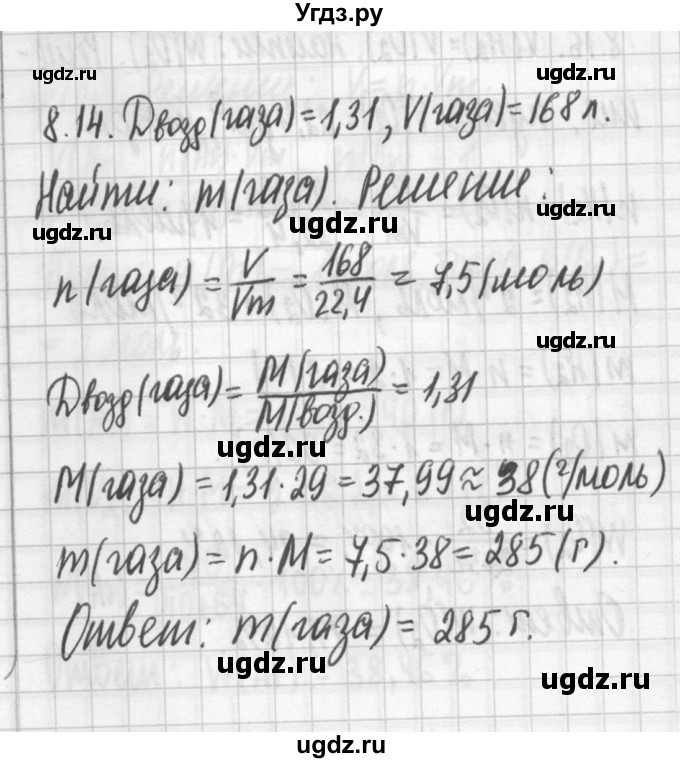 Угдз.ру
ugdz.ru ugdz.ru
8.14. Dвозд(газа)=1,31, V(газа)=168 л.
Найти: m(газа). Решение:
ugdz.ru ugdz.ru
n(газа) = V/Vm = 168/22,4 = 7,5 (моль)
ugdz.ru
Dвозд(газа) = M(газа)/M(возд.) = 1,31
ugdz.ru
M(газа) = 1,31·29 = 37,99 ≈ 38 (г/моль)
ugdz.ru
m(газа) = n·M = 7,5·38 = 285 (г).
Ответ: m(газа) = 285 г.
ugdz.ru
ugdz.ru
ugdz.ru